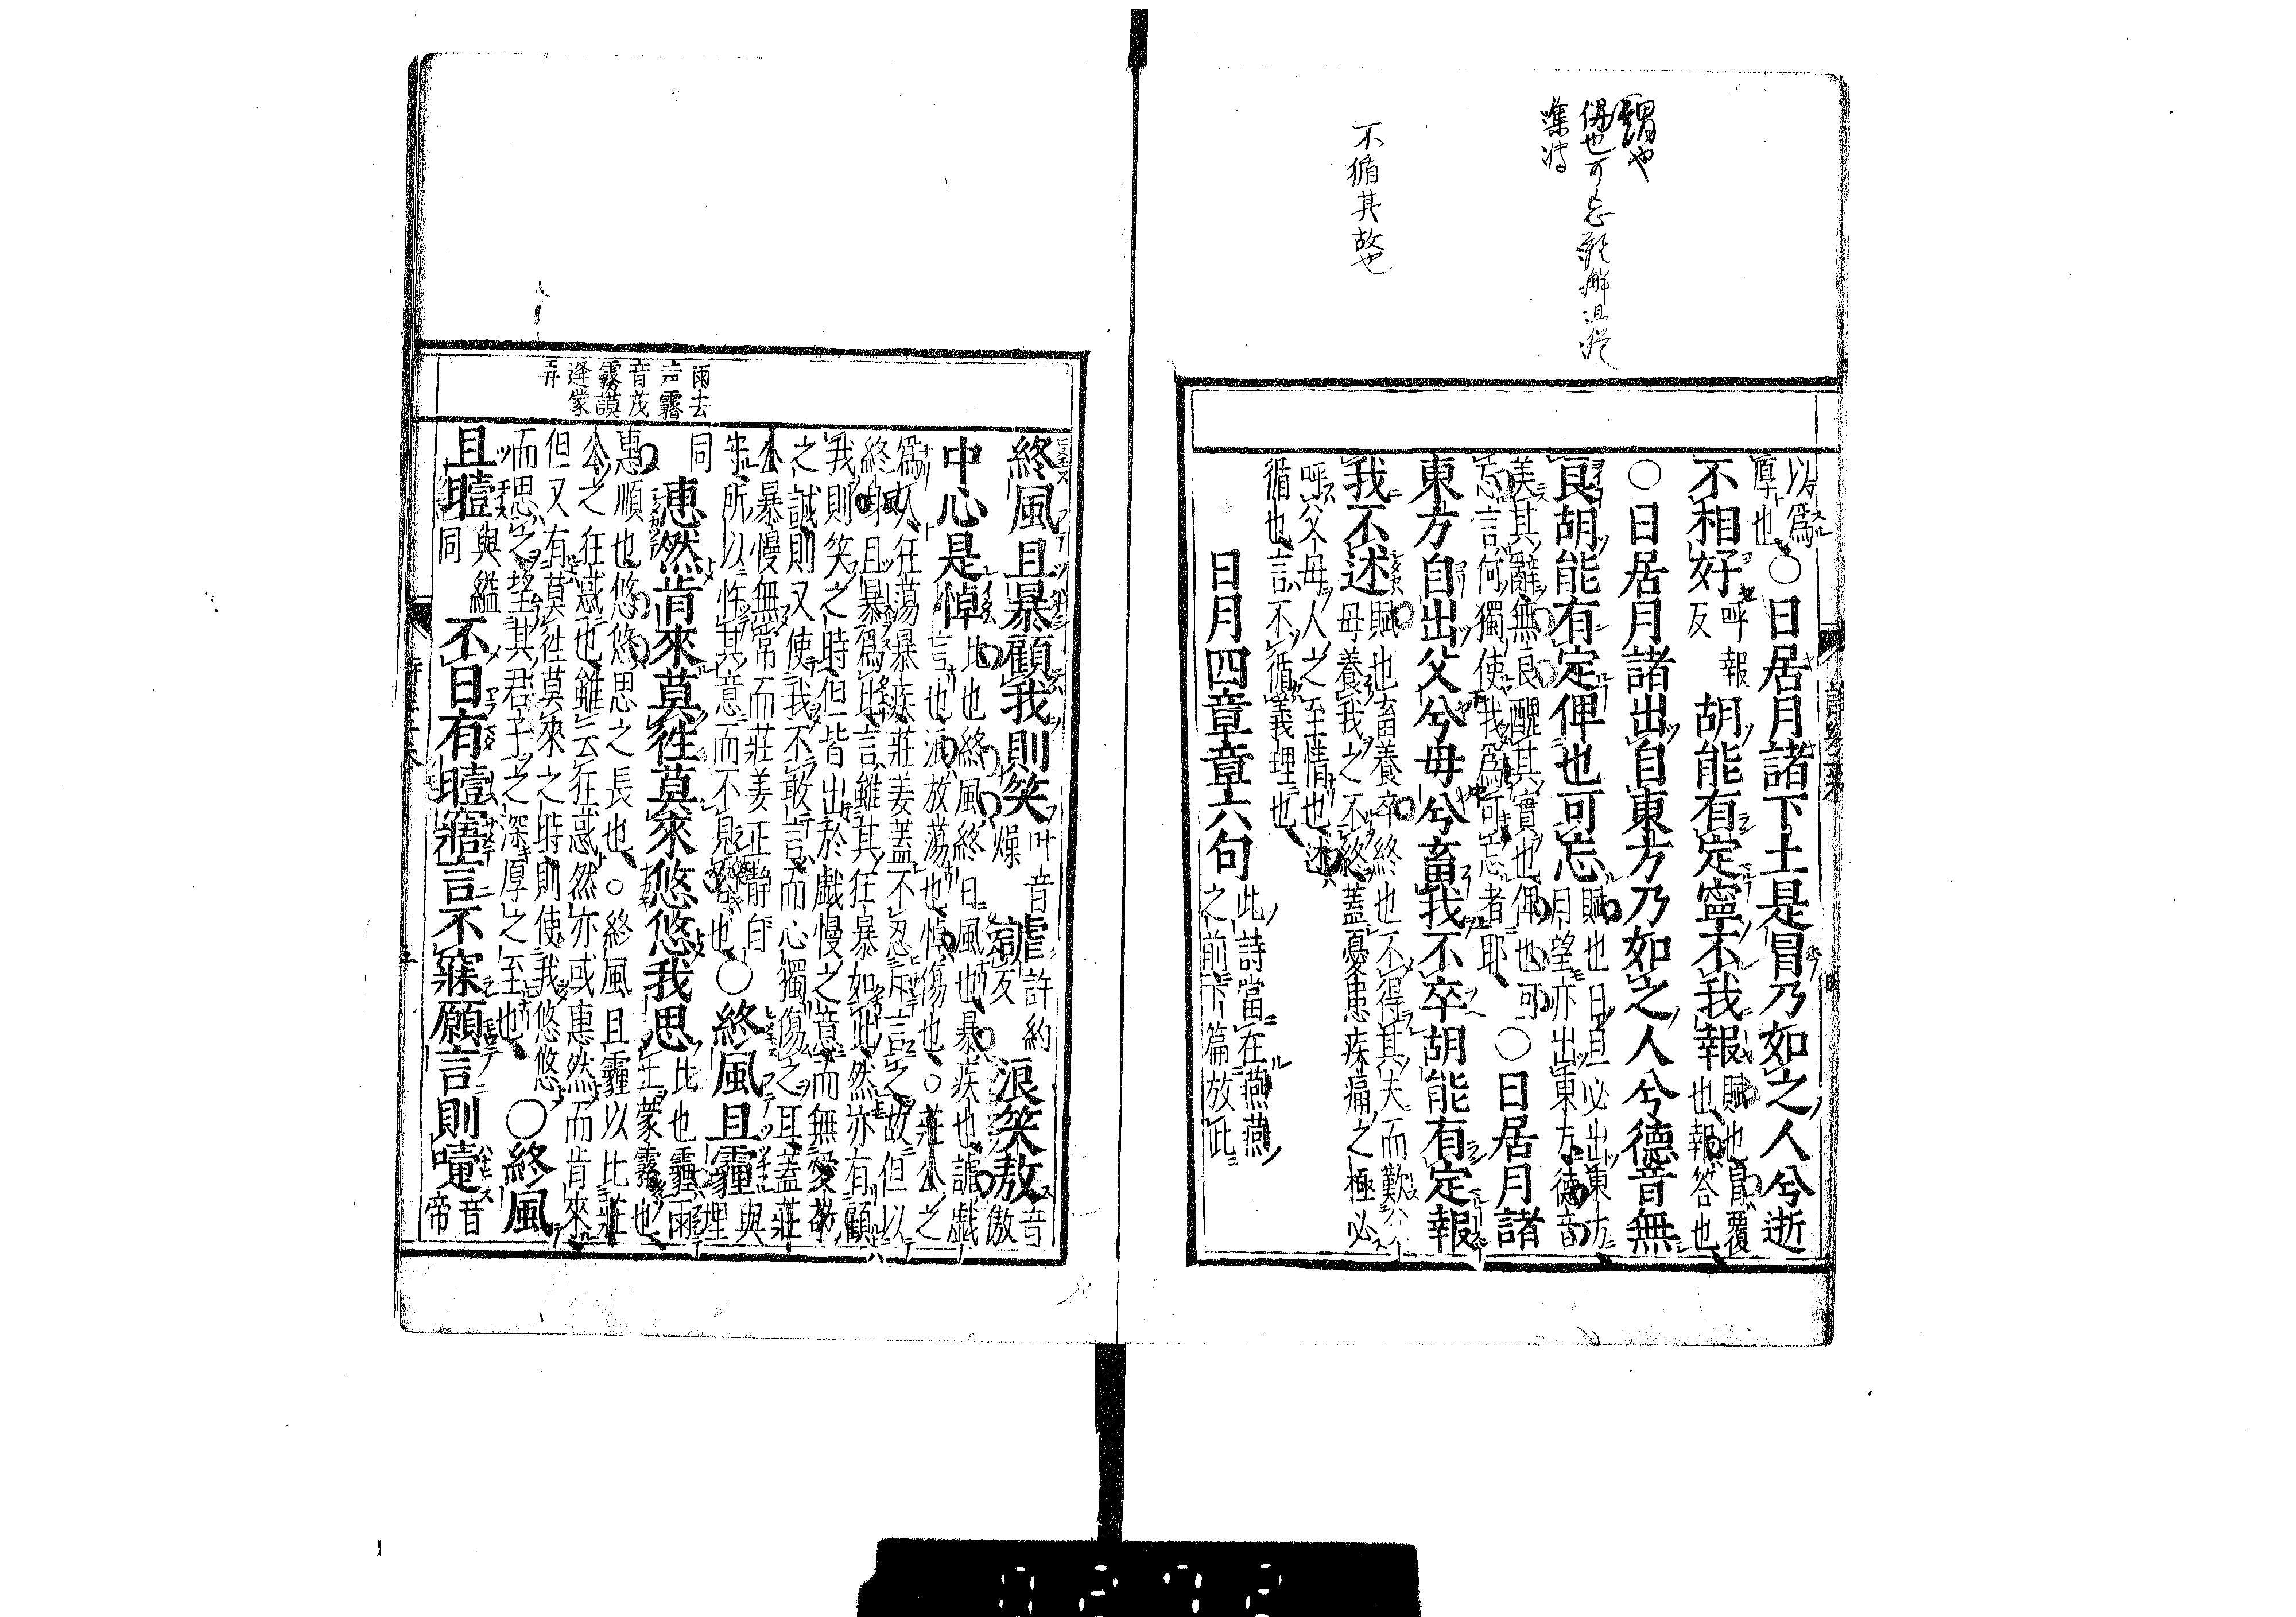 不循其故也
以爲
厚也○日居月諸下土是冒乃如之人兮逝
不相好呼報反胡能有定寧不我報賦也冒覆也報答也
○日居月諸出自東方乃如之人兮德音無
良胡能有定俾也可忘賦也日旦必出東方月望亦出東方德音
美其辭無良醜其實也俾也可
忘言何獨使我爲可忘者耶○日居月諸
東方自出父兮母兮畜我不卒胡能有定報
我不述賦也畜養卒終也不得其夫而歎父母養我之不終蓋憂患疾痛之極必
呼父母人之至情也述
循也言不循義理也
日月四章章六句此詩當在燕燕之前下篇放此
雨去
声霧
音茂
霧謨
逢蒙
弄
終風且暴顧我則笑叶音燥謔許約反浪笑敖音傲
中心是悼比也終風終日風也暴疾也謔戲言也浪放蕩也悼傷也○莊公之
爲人狂蕩暴疾莊姜蓋不忍斥言之故但以
終風且暴爲比言雖其狂暴如此然亦有顧
我則笑之時但皆出於戲慢之意而無愛敬
之誠則又使我不敢言而心獨傷之耳蓋莊
公暴慢無常而莊姜正靜自
守所以忤其意而不見答也○終風且霾與埋
同惠然肯來莫往莫來悠悠我思比也霾雨土蒙霧也
惠順也悠悠思之長也○終風且霾以比莊
公之狂惑也雖云狂惑然亦或惠然而肯來
但又有莫往莫來之時則使我悠悠
而思之望其君子之深厚之至也○終風
且曀與㙪同不日有曀寤言不寐願言則嚏音帝